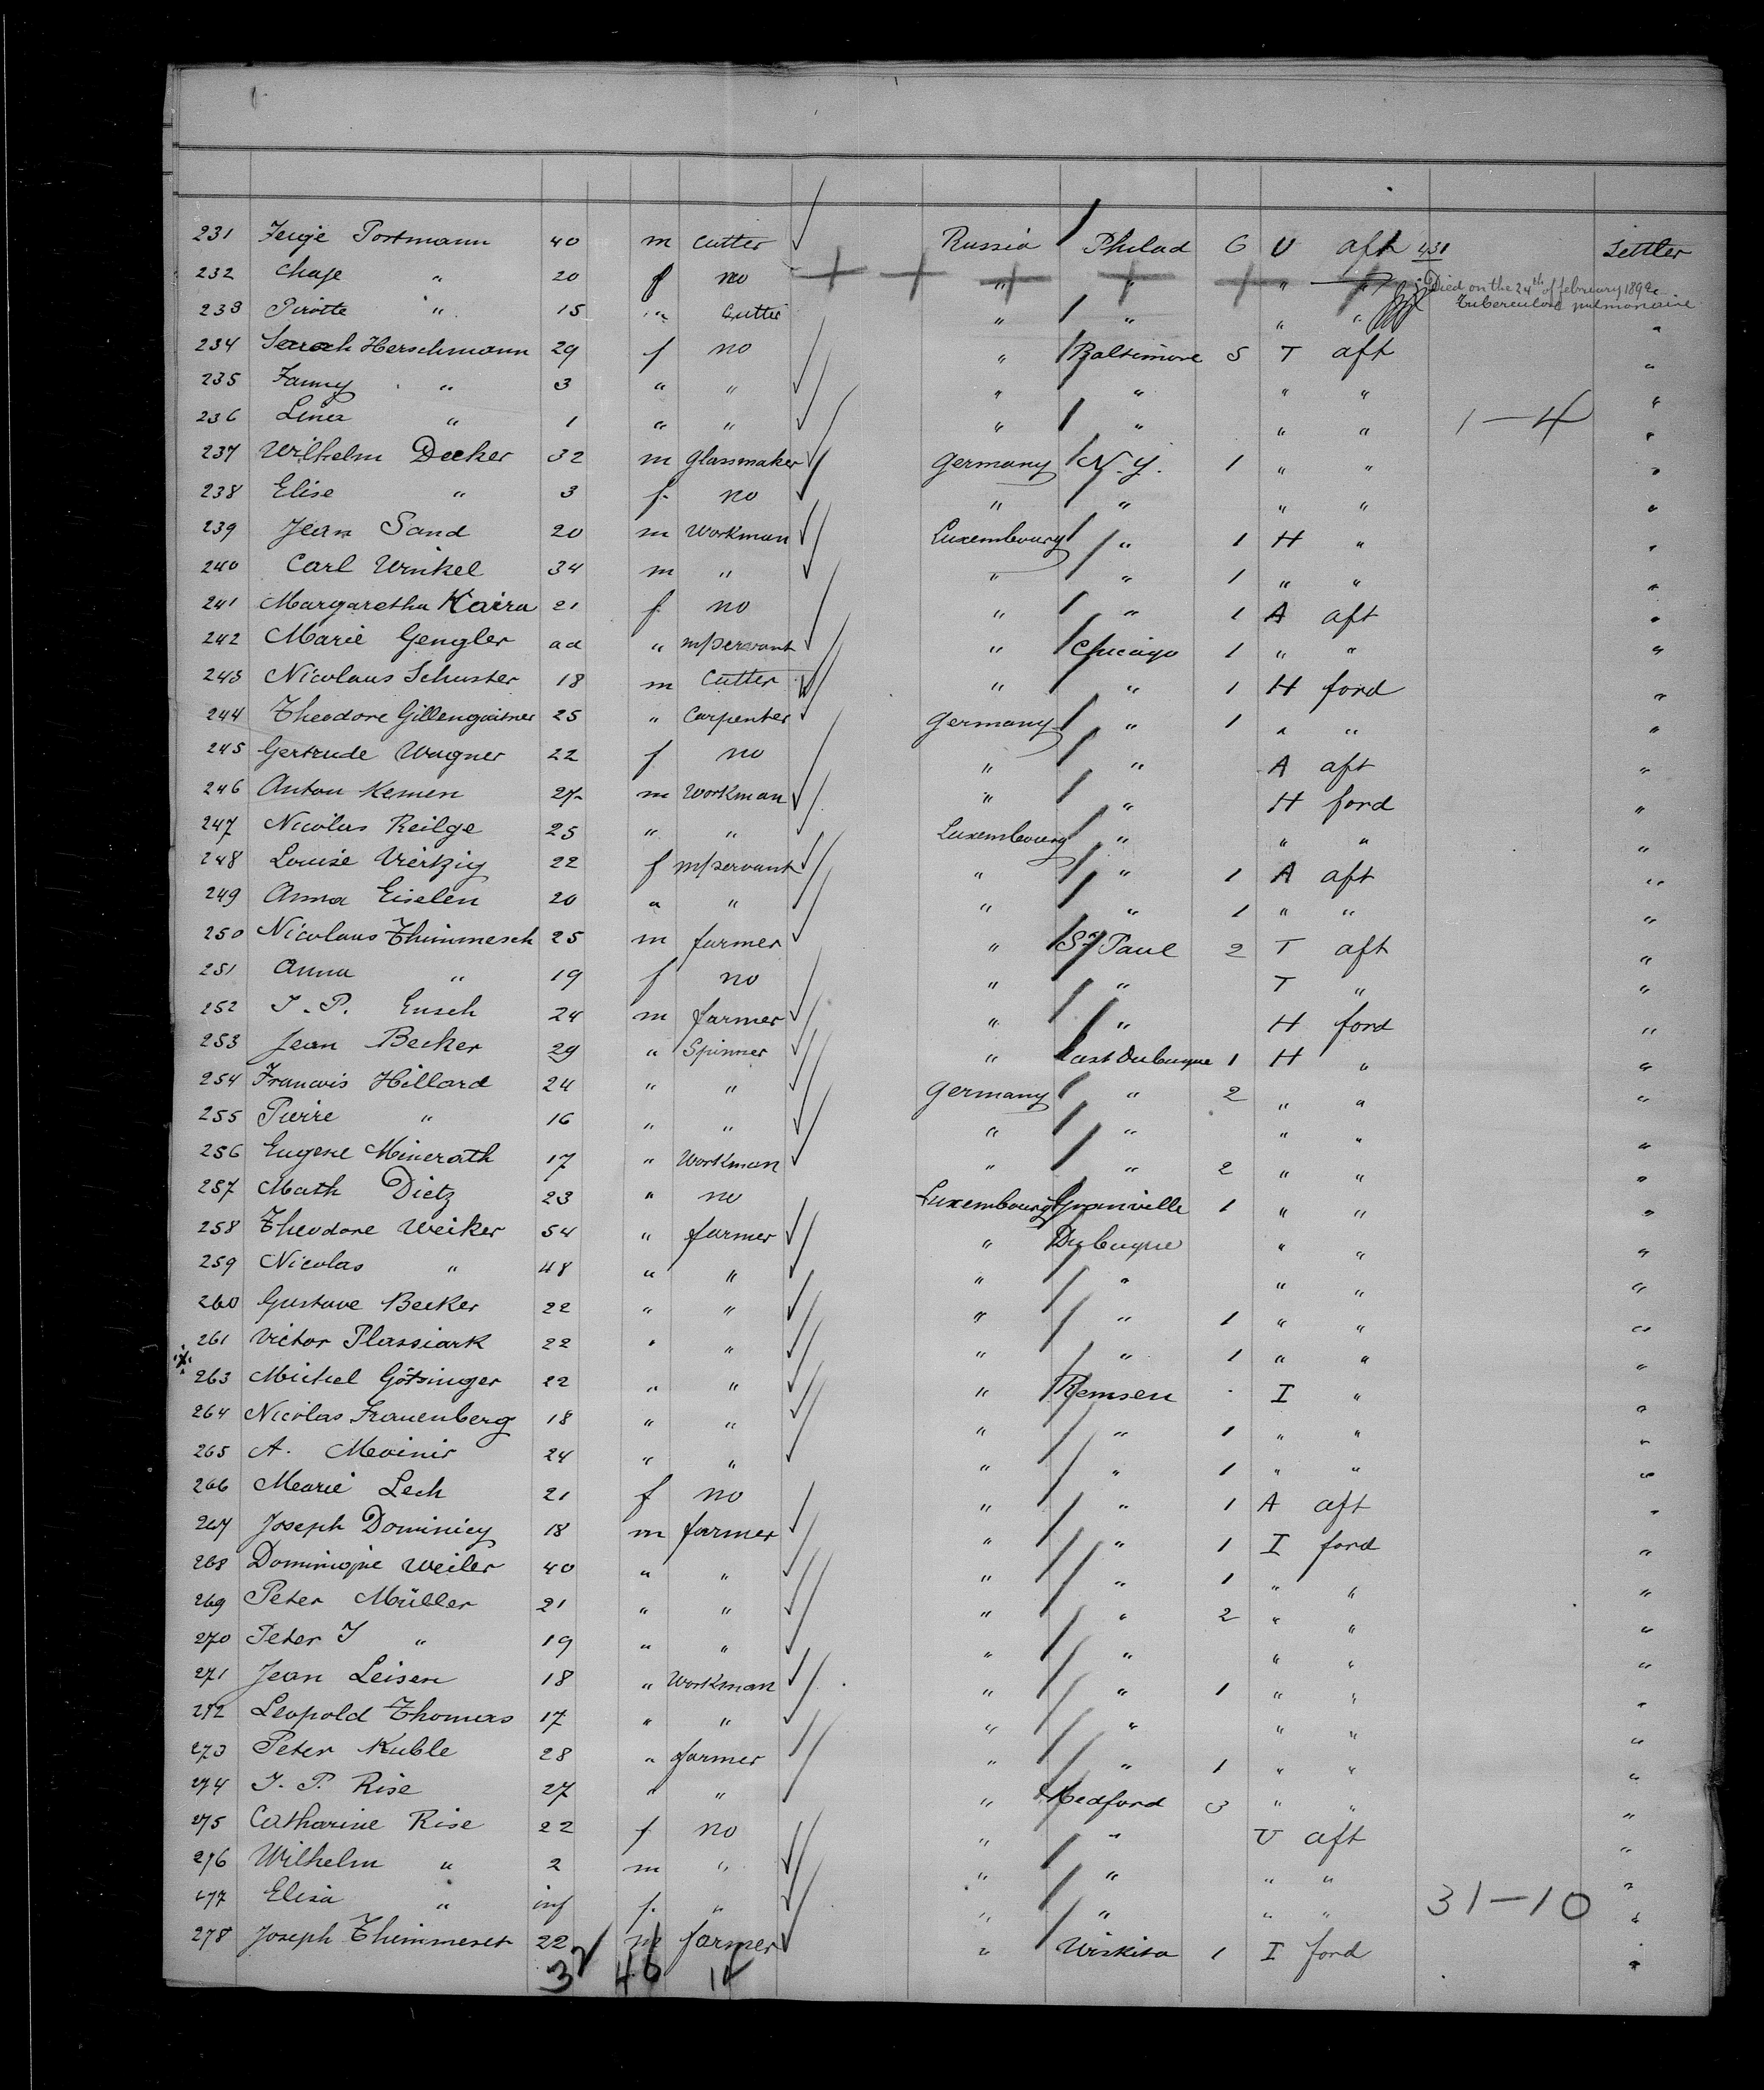 231 Jeuje Portmann 40 m Cutter Russia Philad 6 U aft 431 Settler
232 Chaje " 20 f no " " " "
Died on the 24th of february 1892
Tuberculose pulmonaire
233 Pirotte " 15 " Cutter " " " " "
234 Sarach Herschmann 29 f no " Baltimore S T aft "
235 Fanny " 3 " " " " " " "
236 Lina " 1 " " " " " " 1-4 "
237 Wilhelm Decker 32 m Glassmaker Germany N.Y. 1 " " "
238 Elise " 3 f. no " " " " "
239 Jean Sand 20 m Workman Luxembourg " 1 H " "
240 Carl Winkel 34 m " " " 1 " " "
241 Margaretha Kaira 21 f. no " " 1 A aft "
242 Marie Gengler ad " m/servant " Chicago 1 " " "
243 Nicolaus Schuster 18 m Cutter " " 1 H ford "
244 Theodore Gillengaitner 25 " Carpenter Germany " 1 " " "
245 Gertrude Wagner 22 f no " " A aft "
246 Anton Kemen 27 m Workman " " H ford "
247 Nicolas Reilge 25 " " Luxembourg " " " "
248 Louise Viertzig 22 f m/servant " " 1 A aft "
249 Anna Eiselen 20 " " " " 1 " " "
250 Nicolaus Thimmesch 25 m farmer " St Paul 2 T aft "
251 Anna " 19 f no " " T " "
252 J. P. Ensch 24 m farmer " " H ford "
253 Jean Becker 29 " Spinner " East Dubuque 1 H " "
254 Francois Hillard 24 " " Germany " 2 " " "
255 Pierre " 16 " " " " " " "
256 Eugene Minerath 17 " Workman " " 2 " " "
257 Math Dietz 23 " no Luxembourg Granville 1 " " "
258 Theodore Weiker 54 " farmer " Dubuque " " "
259 Nicolas " 48 " " " " " " "
260 Gustave Becker 22 " " " " 1 " " "
261 Victor Plassiark 22 " " " " 1 " " "
263 Michel Götsinger 22 " " " Remsen I " "
264 Nicolas Frauenberg 18 " " " " 1 " " "
265 A. Mevinir 24 " " " " 1 " " "
266 Marie Lech 21 f no " " 1 A aft "
267 Joseph Dominicy 18 m farmer " " 1 I ford "
268 Dominique Weiler 40 " " " " 1 " " "
269 Peter Müller 21 " " " " 2 " " "
270 Peter J " 19 " " " " " " "
271 Jean Leisen 18 " Workman " " 1 " " "
272 Leopold Thomas 17 " " " " " " "
273 Peter Kuble 28 " farmer " " 1 " " "
274 J. P. Rise 27 " " " Medford 3 " " "
275 Catharine Rise 22 f no " " U aft "
276 Wilhelm " 2 m " " " " " "
277 Elisa " inf f. " " " " " 31-10 "
278 Joseph Thimmesch 22 m farmer " Wiskita 1 I ford "
32 46 14